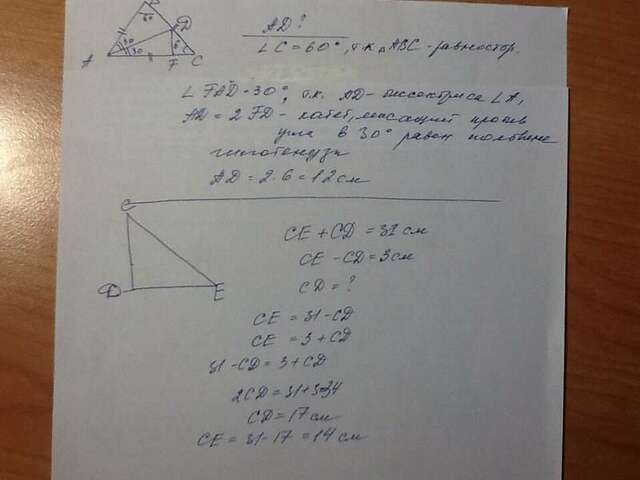 B
60
D
30
30
6
A
F
C
AD?
∠C=60°, т.к △ABC - равностор.
∠FAD=30°, т.к. AD- биссектриса ∠A,
AD=2FD- катет, лежащий против
угла в 30° равен половине
гипотенузы
AD=2·6=12см
C
D
E
CE+CD=31см
CE-CD=3см
CD=?
CE=31-CD
CE=3+CD
31-CD=3+CD
2CD=31+3=34
CD=17см
CE=31-17=14см